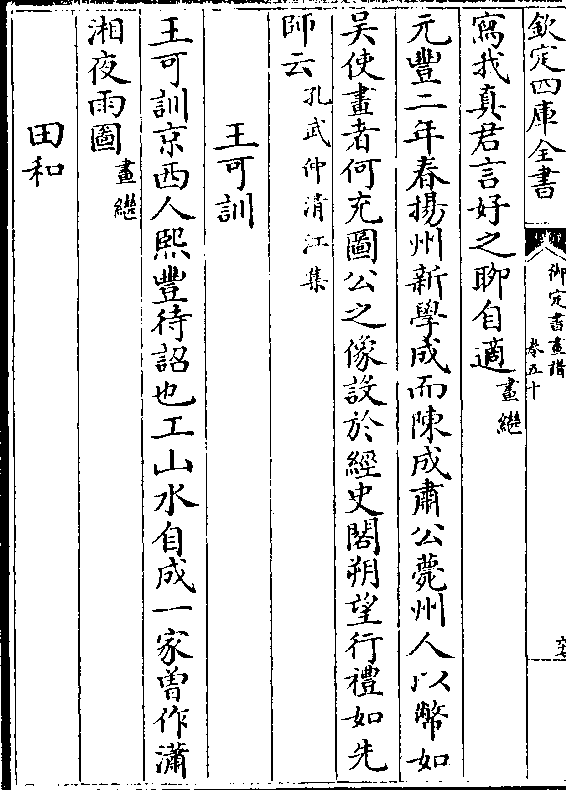 欽定四庫全書
御定書畫譜
卷五十
寫我真君言好之聊自適畫繼
元豐二年春揚州新學成而陳成肅公薨州人以幣如
吴使畫者何充圖公之像設於經史閣朔望行禮如先
師云孔武仲清江集
王可訓
王可訓京西人熙豐待詔也工山水自成一家曽作瀟
湘夜雨圖畫繼
田和